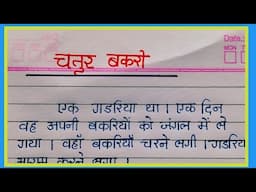 Date
MON
चतुर बकरी
एक गडरिया था । एक दिन
वह अपनी बकरियों को जंगल में ले
गया । वहाँ बकरियाँ चरने लगी । गडरिया